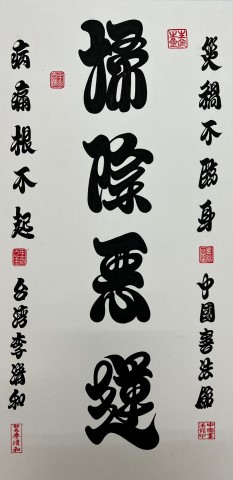 災禍不臨身 中國書法館
掃除惡運
病痛根不起 台灣李清和